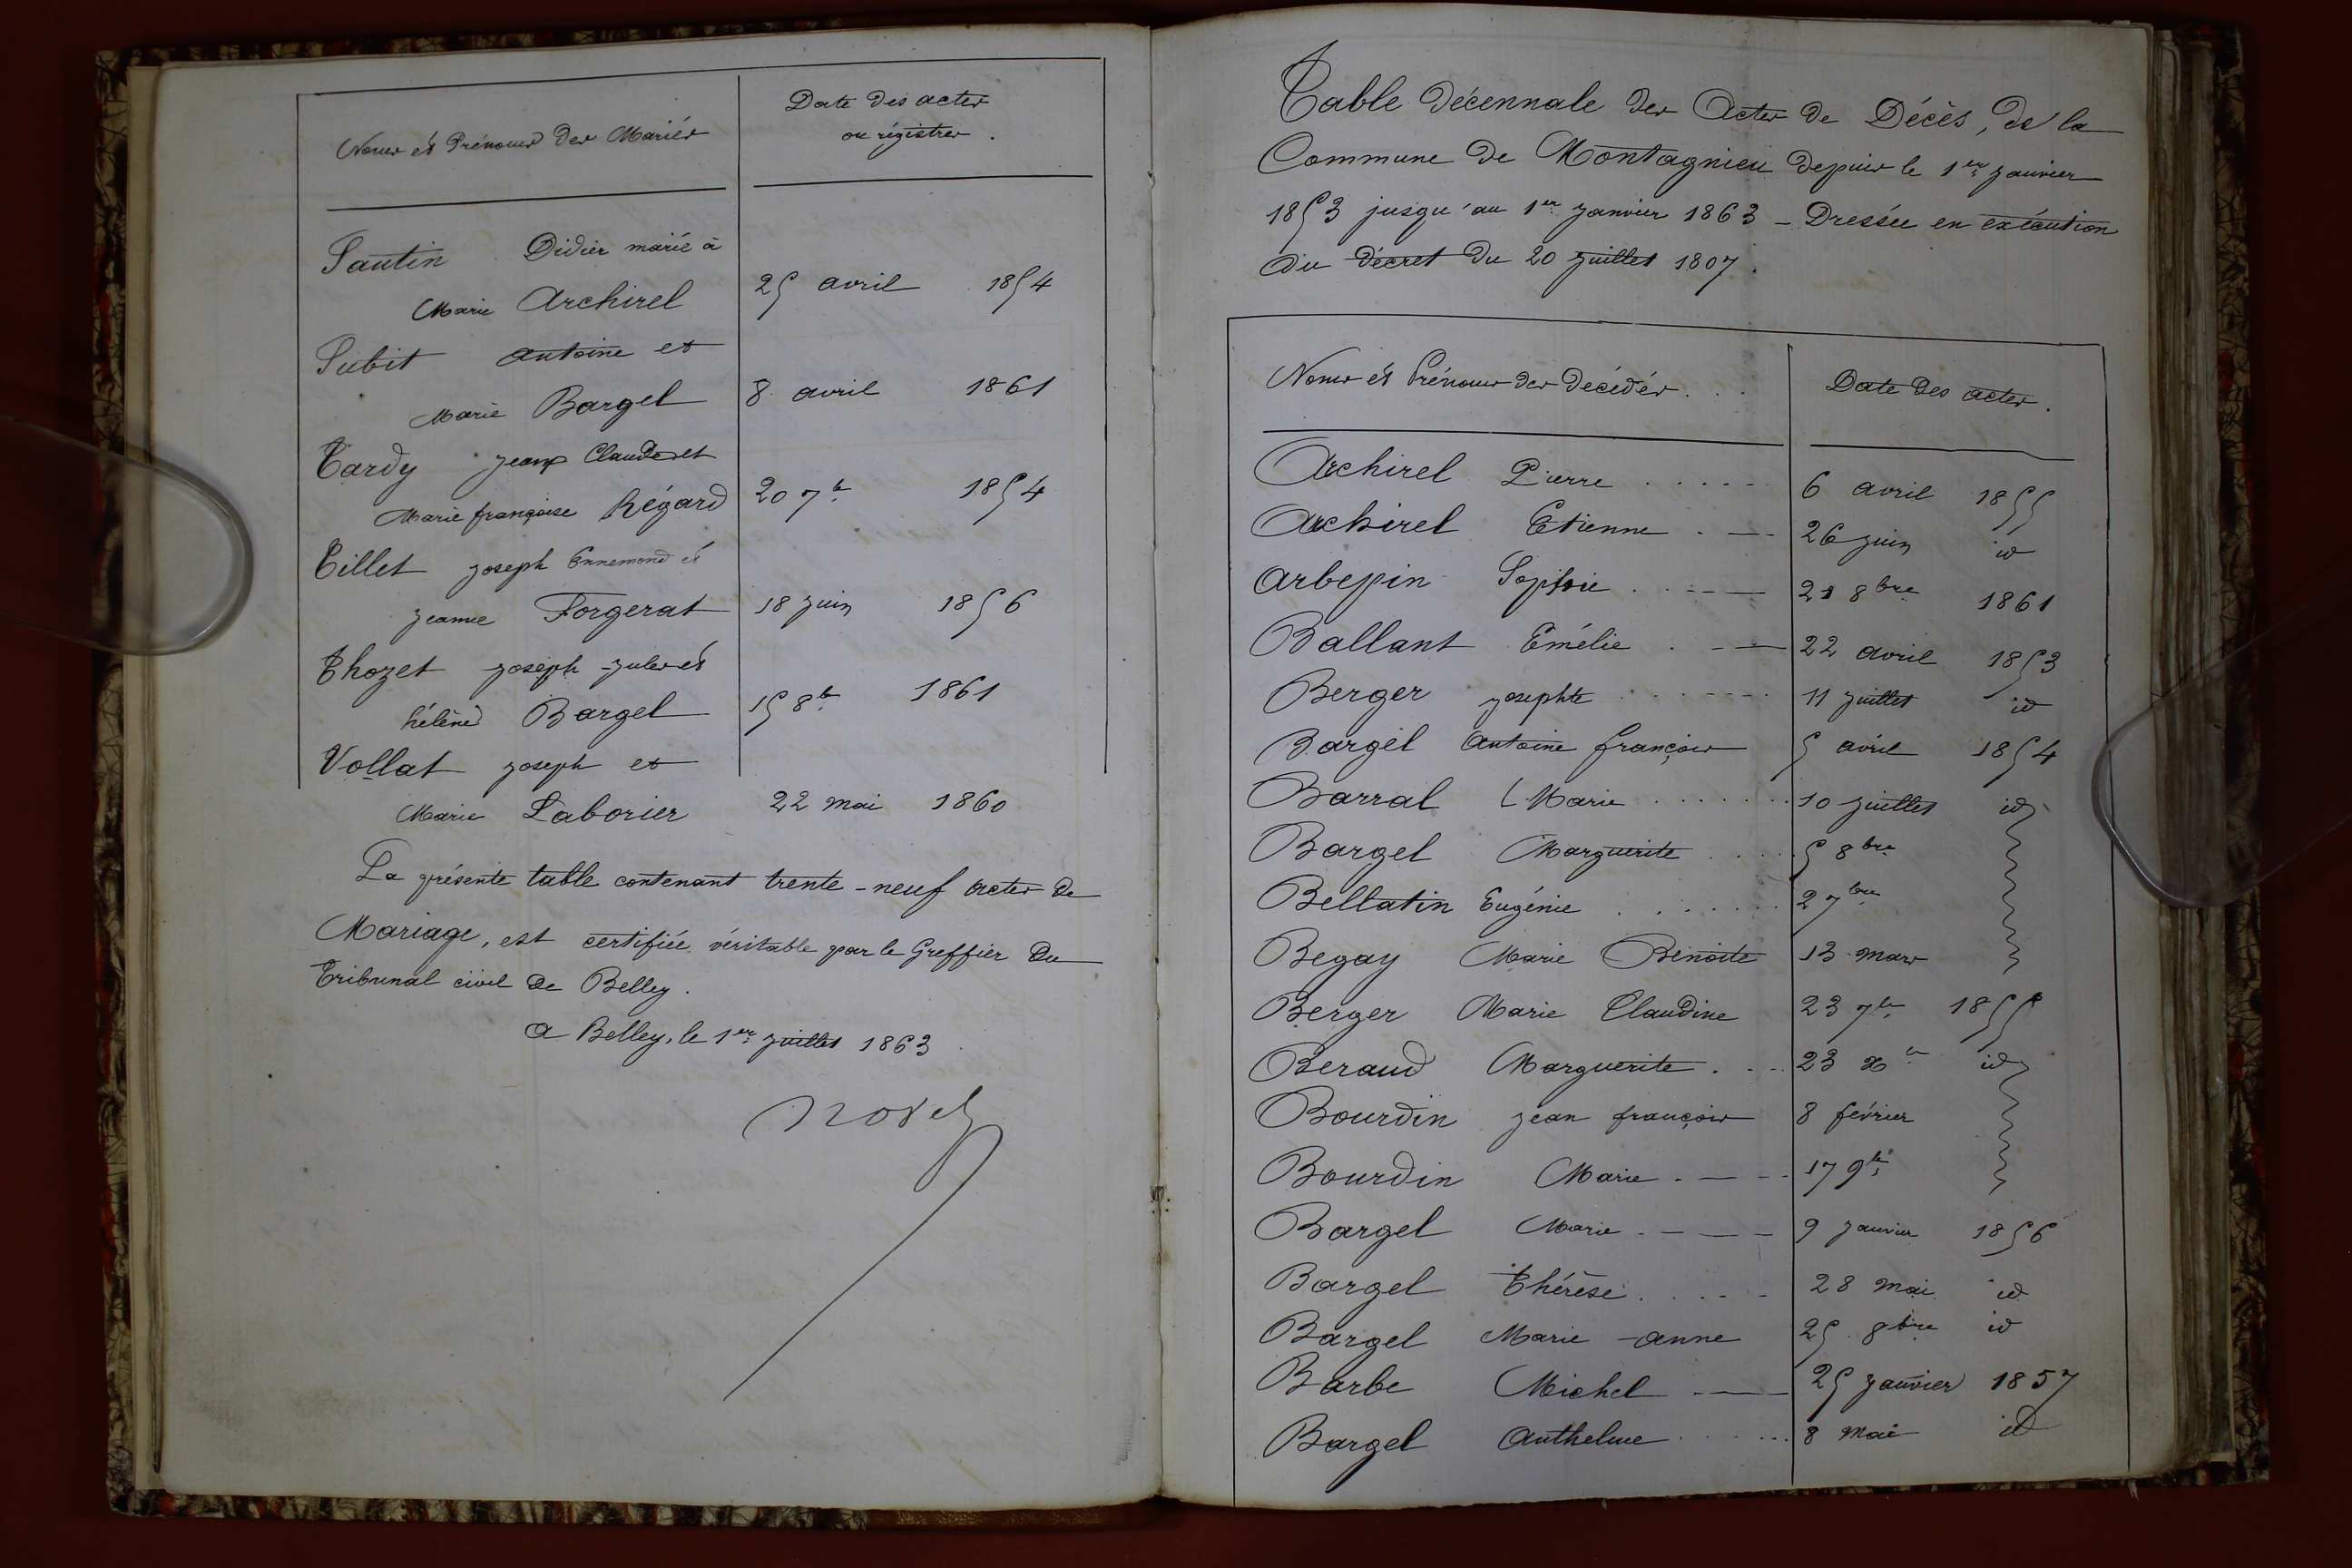 Noms et Prénoms des Mariés
Date des actes
ou régistres.
Santin Didier marié à
Marie Archirel 25 avril 1854
Subit antoine et
Marie Bargel 8 avril 1861
Tardy jean Claude et
Marie françoise Régard 20 7bre 1854
Tillet joseph Ennemond et
jeanne Forgerat 18 juin 1856
Thozet joseph-jules et
hélène Bargel 15 8bre 1861
Vollat joseph et
Marie Laborier 22 mai 1860
La présente table contenant trente-neuf actes de
Mariage, est certifiée véritable par le Greffier du
Tribunal civil de Belley.
a Belley, le 1er juillet 1863
Table décennale des Actes de Décès, de la
Commune de Montagnieu depuis le 1er janvier
1853 jusqu'au 1er janvier 1863 - Dressée en exécution
du décret du 20 juillet 1807.
Noms et Prénoms des décédés... Date des actes.
Archirel Pierre 6 avril 1855
Archirel Etienne 26 juin id
arbepin Sophie 21 8bre 1861
Ballant Emélie 22 avril 1853
Berger josephte 11 juillet id
Bargel Antoine françois 5 avril 1854
Barral Marie 10 juillet id
Bargel Marguerite 5 8bre
Bellatin Eugénie 2 7bre
Begay Marie Benoite 13 mars
Berger Marie Claudine 23 7bre 1855
Beraud Marguerite 23 Xbre id
Bourdin jean françois 8 février
Bourdin Marie 17 9bre
Bargel Marie 9 janvier 1856
Bargel Thérèse 28 mai id
Bargel Marie-anne 25 8bre id
Barbe Michel 25 janvier 1857
Bargel Anthelme 8 mai id